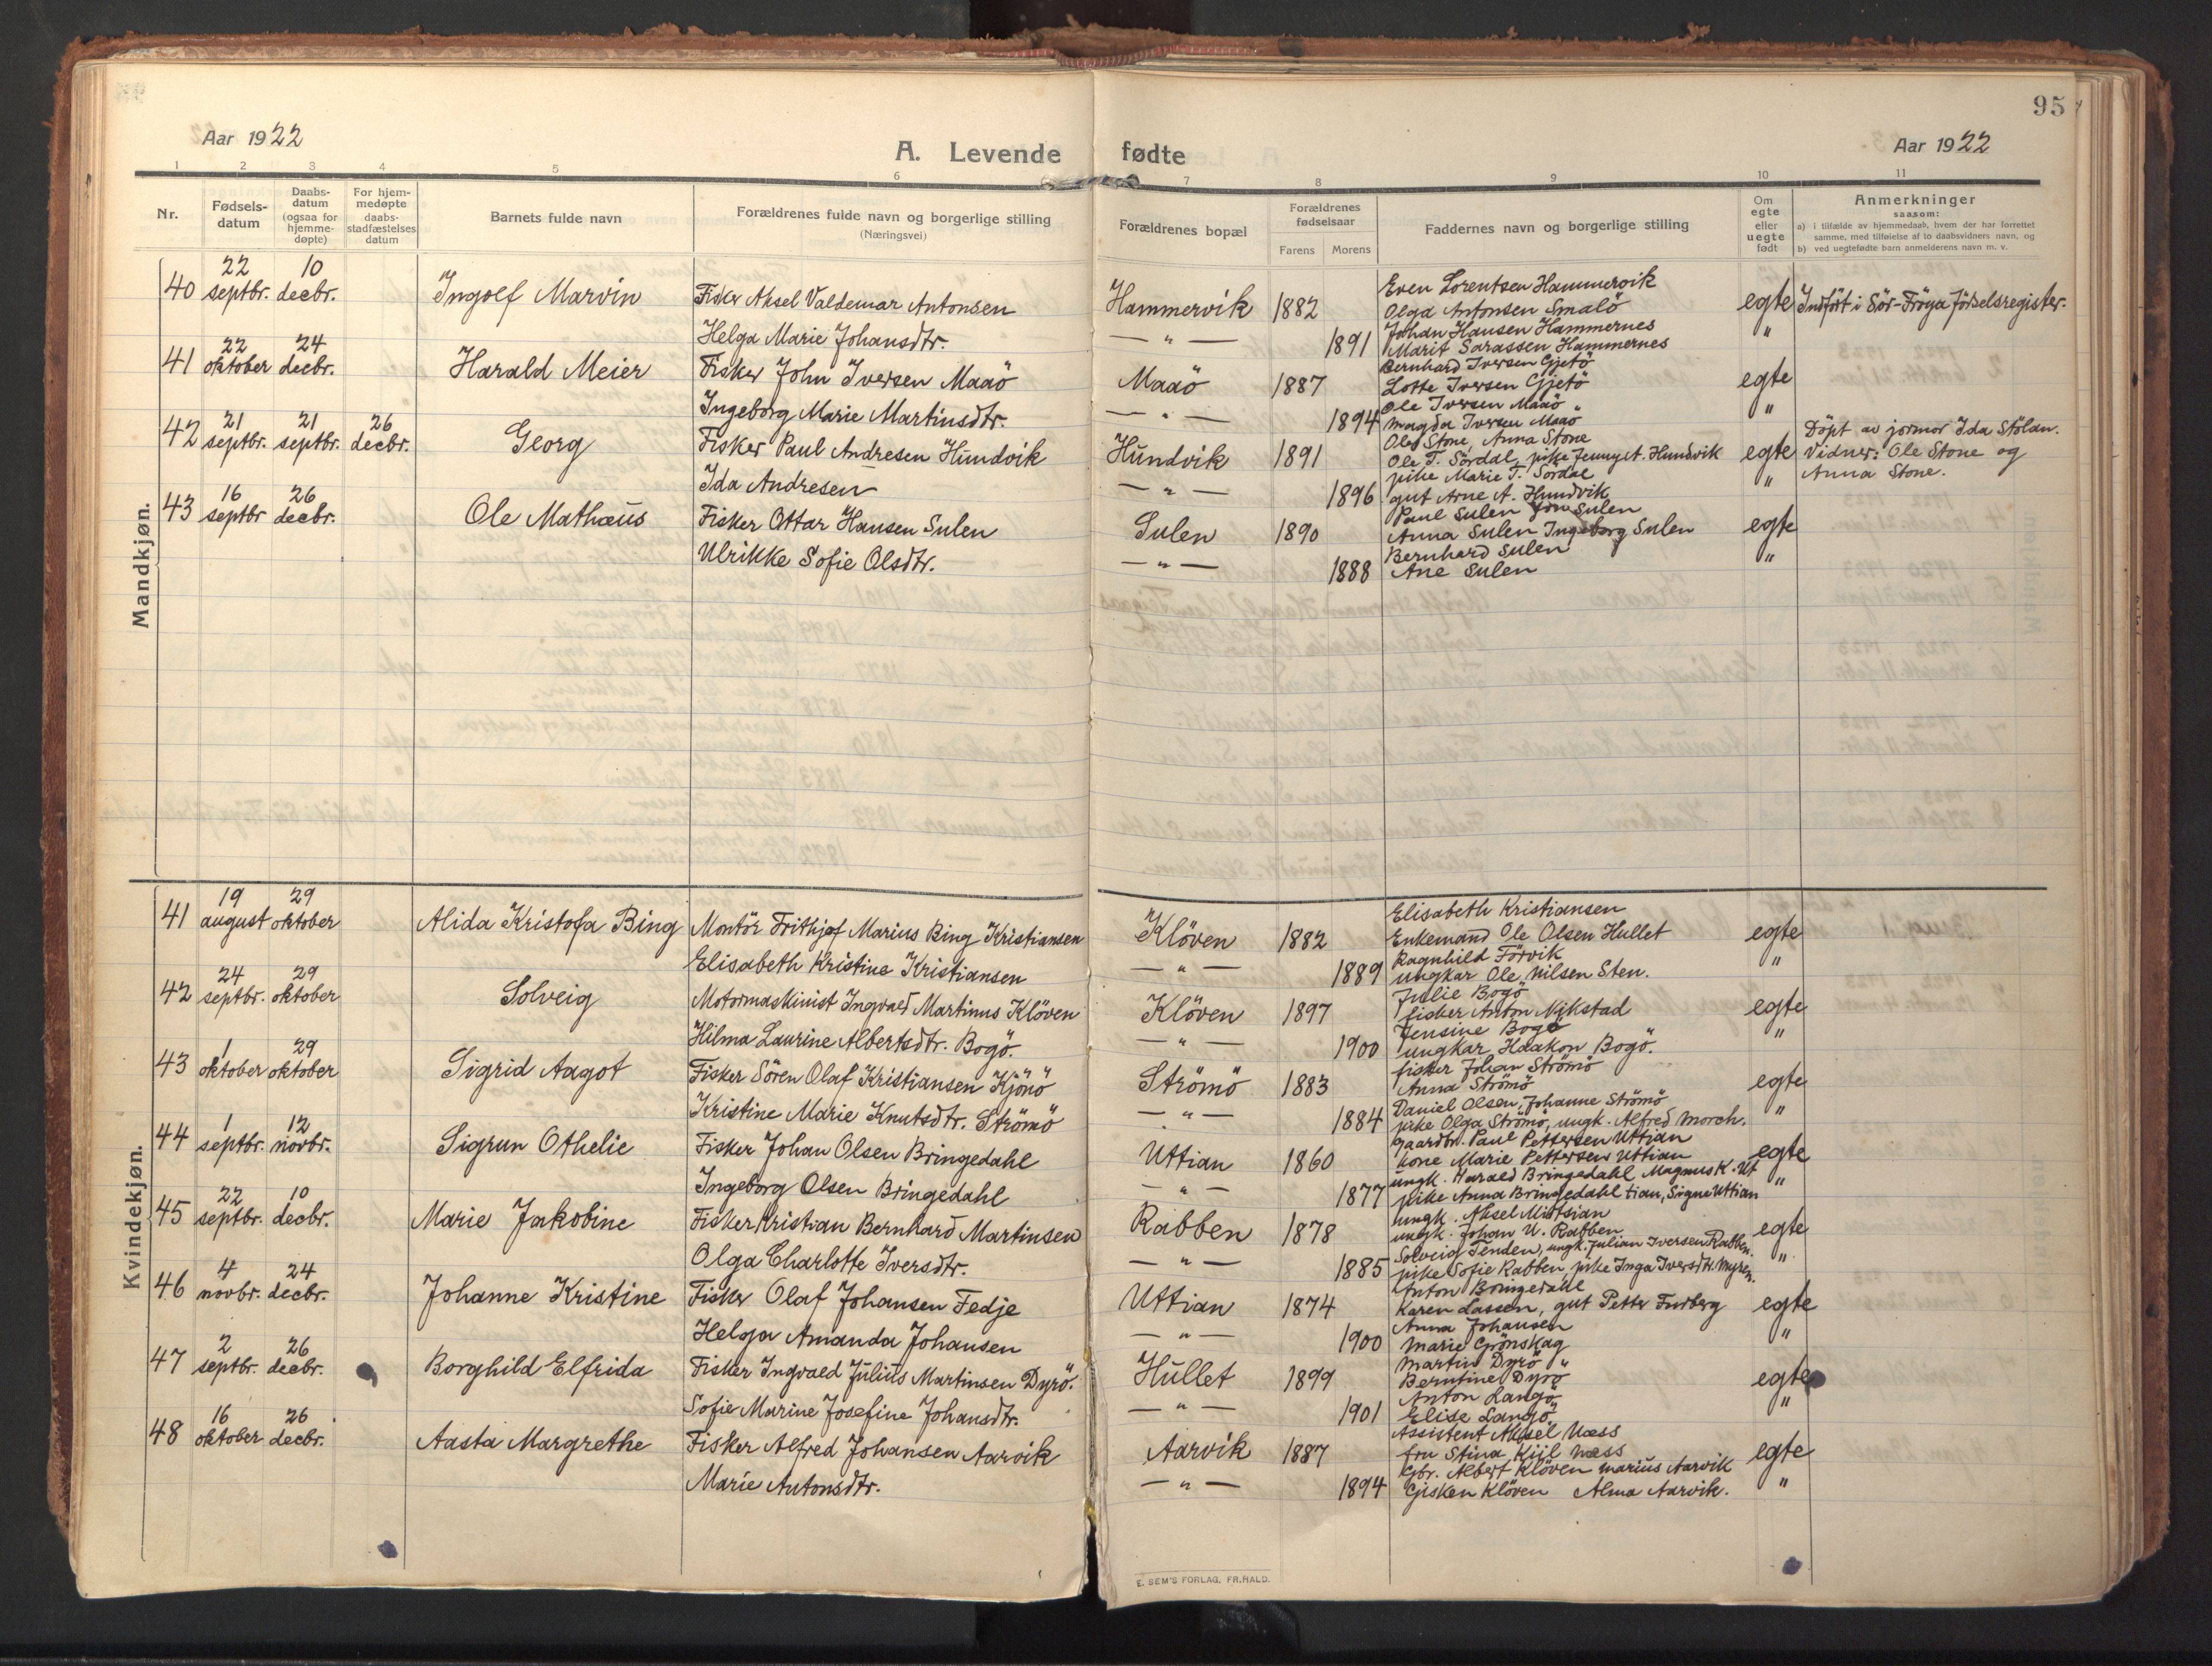 95
Aar 1922
A. Levende fødte
Aar 1922
1 2 3 4 5 6 7 8 9 10 11
Nr.
Fødsels-
datum
Daabs-
datum
(ogsaa for
hjemme-
døpte)
For hjem-
medøpte
daabs-
stadfæstelses
datum
Barnets fulde navn
Forældrenes fulde navn og borgerlige stilling
(Næringsvei)
Forældrenes bopæl
Forældrenes
fødselsaar
Farens Morens
Faddernes navn og borgerlige stilling
Om
egte
eller
uegte
født
Anmerkninger
saasom:
a) i tilfælde av hjemmedaab, hvem der har forrettet
samme, med tilføielse af to daabsvidners navn, og
b) ved uegtefødte barn anmelderens navn m. v.
Mandkjøn.
40 22 septbr. 10 decbr. Ingolf Marvin Fisker Aksel Valdemar Antonsen Hammervik 1882 egte Indført i Sör-Fröya födselsregister.
Helga Marie Johansdtr. — " — 1891 "
Even Lorentsen Hammervik
Olga Antonsen Smalö
Johan Hansen Hammernes
Marit Sarassen Hammernes
41 22 oktober 24 decbr. Harald Meier Fisker John Iversen Maaö Maaö 1887 egte
Ingeborg Marie Martinsdtr. — " — 1894 "
Bernhard Iversen Gjetö
Lotte Iversen Gjetö
Ole Iversen Maaö
Magda Iversen Maaö
42 21 septbr. 21 septbr. 26 decbr. Georg Fisker Paul Andresen Hundvik Hundvik 1891 egte
Ida Andresen — " — 1896 "
Ole Stone, Anna Stone
Ole T. Sördal, pike Jenny A. Hundvik
pike Marie T. Sördal
gut Arne A. Hundvik
Döpt av jormor Ida Stölan.
Vidner: Ole Stone og
Anna Stone.
43 16 septbr 26 decbr. Ole Mathæus Fisker Ottar Hansen Sulen Sulen 1890 egte
Ulrikke Sofie Olsdtr. — " — 1888 "
Paul Sulen Jon Sulen
Anna Sulen Ingeborg Sulen
Bernhard Sulen
Ane Sulen
Kvindekjøn.
41 19 august 29 oktober Alida Kristofa Bing Montör Frithjof Marius Bing Kristiansen Klöven 1882 egte
Elisabeth Kristine Kristiansen — " — 1889 "
Elisabeth Kristiansen
Enkemand Ole Olsen Hullet
Ragnhild Förvik
ungkar Ole Nilsen Sten.
42 24 septbr. 29 oktober Solveig Motormaskinist Ingvald Martinus Klöven Klöven 1897 egte
Hilma Laurine Albertsdtr. Bogö. — " — 1900 "
Julie Bogö
fisker Anton Mikstad
Jensine Bogö
ungkar Haakon Bogö.
43 1 oktober 29 oktober Sigrid Aagot Fisker Sören Olaf Kristiansen Kjönö Strömö 1883 egte
Kristine Marie Knutsdtr. Strömö — " — 1884 "
fisker Johan Strömö
Anna Strömö
Daniel Olsen, Johanne Strömö
pike Olga Strömö, ungk. Alfred Morch.
44 1 septbr. 12 novbr. Sigrun Othelie Fisker Johan Olsen Bringedahl Uttian 1860 egte
Ingeborg Olsen Bringedahl — " — 1877 "
gaardbr. Paul Pettersen Uttian
kone Marie Pettersen Uttian
ungk. Harald Bringedahl Magnus K. Ut
pike Anna Bringedahl tian, Signe Uttian
45 22 septbr. 10 decbr. Marie Jakobine Fisker Kristian Bernhard Martinsen Rabben 1878 egte
Olga Charlotte Iversdtr. — " — 1885 "
ungk. Aksel Mittsian
ungk. Johan U. Rabben
Solveig Tenden, ungk. Julian Iversen Rabben.
pike Sofie Rabben, pike Inga Iversdtr. Myren.
46 4 novbr. 24 decbr. Johanne Kristine Fisker Olaf Johansen Fedje Uttian 1874 egte
Helga Amanda Johansen — " — 1900 "
Anton Bringedahl
Karen Lassen, gut Petter Furberg
Anna Johansen
Marie Grönskag
47 2 septbr. 26 decbr. Borghild Elfrida Fisker Ingvald Julius Martinsen Dyrö. Hullet 1899 egte
Sofie Marine Josefine Johansdtr. — " — 1901 "
Martin Dyrö "
Berntine Dyrö
Anton Langö
Elise Langö
48 16 oktober 26 decbr. Aasta Margrethe Fisker Alfred Johansen Aarvik Aarvik 1887 egte
Marie Antonsdtr. — " — 1894 "
Assistent Aksel Næss
fru Stina Kiil Næss
Gbr. Albert Klöven Marius Aarvik
Gjsken Klöven Alma Aarvik.
E. SEM'S FORLAG, FR.HALD.